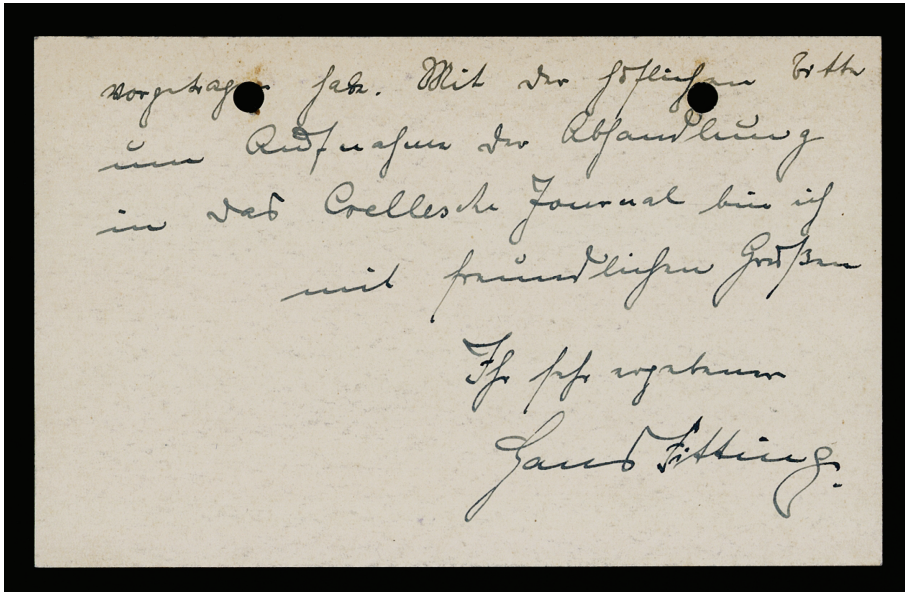 vorgetragen habe. Mit der höflichen Bitte
um Aufnahme der Abhandlung
in das Crellesche Journal bin ich
mit freundlichen Grüßen
Ihr sehr ergebener
Hans Fitting.